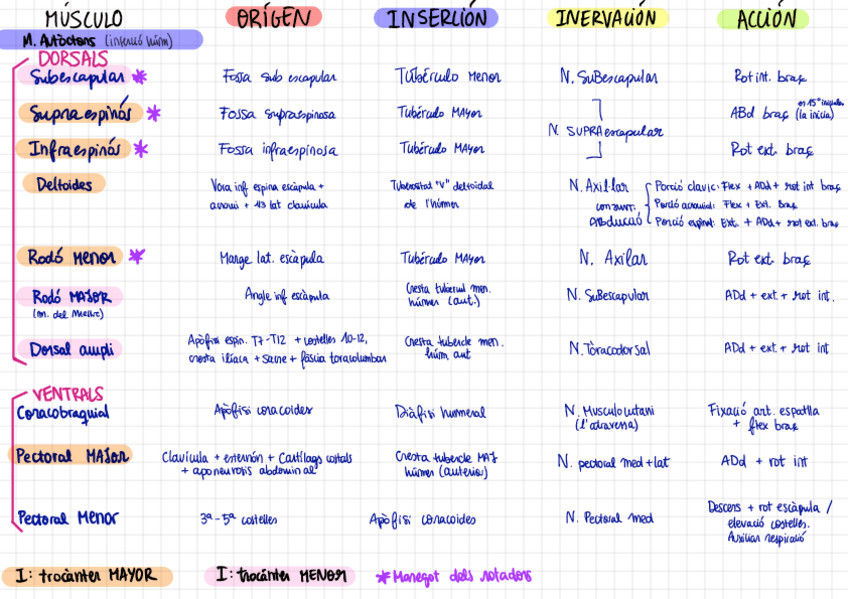 MÚSCULO ORÍGEN INSERCIÓN INERVACIÓN ACCIÓN
M. Autòctons (inserció húm)
DORSALS
Subescapular * Fossa sub escapular Tubérculo Menor N. SuBescapular Rot int. braç
Supraespinós * Fossa supraspinosa Tubérculo MAyor ABd braç (la inicia)
N. SUPRAescapular
Infraespinós * Fossa infraespinosa Tubérculo MAyor Rot ext. braç
Deltoides Vora inf espina escàpula + Tuberositat "V" deltoidal N. Axil·lar Porció clavic: Flex + ADd + rot int braç
acromi + 1/3 lat clavícula de l'húmer Porció acromial: Flex + Ext. Braç
Porció espinal: Ext. + ADd + rot ext. braç
Rodó Menor * Marge lat. escàpula Tubérculo MAyor N. Axilar Rot ext. braç
Rodó MAJOR Angle inf escàpula Cresta tubercul men. N. SuBescapular ADd + ext + rot int.
(m. del Mestre) húmer (ant.)
Dorsal ampli Apòfisi espin. T7-T12 + costelles 10-12, Cresta tubercle men. N. Tòracodorsal ADd + ext + rot int
cresta ilíaca + sacre + fàscia toracolumbar húm ant
VENTRALS
Coracobraquial Apòfisi coracoides Diàfisi humeral N. Musculocutani Fixació ant. espatlla
(l'atravessa) + flex braç
Pectoral MAJOR Clavícula + esternón + Cartílags costals Cresta tubercle MAJ N. pectoral med+lat ADd + rot int
+ aponeurosis abdominal húmer (anterior)
Pectoral Menor 3ª-5ª costelles Apòfisi coracoides N. Pectoral med Descens + rot escàpula /
elevació costelles.
Auxiliar respiració
I: trocànter MAYOR I: trocànter MENOR *Manegot dels rotadors